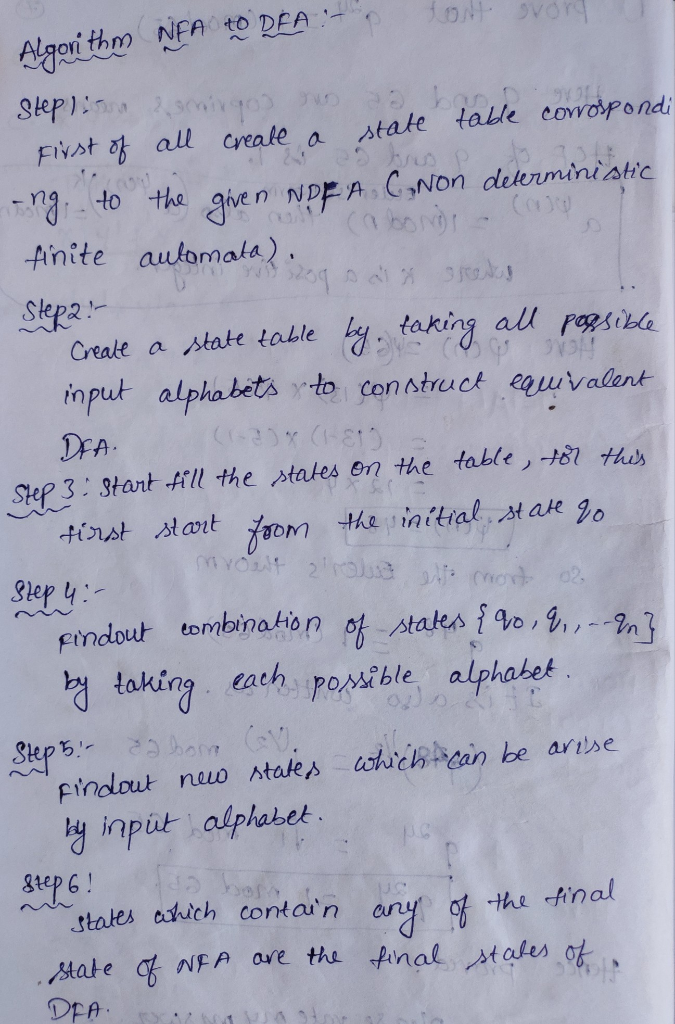 Algorithm NFA to DFA :-
Step 1:-
First of all create a state table correspondi
-ng to the given NDFA (Non deterministic
finite automata).
Step2:-
Create a state table by taking all possible
input alphabets to construct equivalent
DFA.
Step 3: Start fill the states on the table, for this
first start from the initial state q0
Step 4:-
Findout combination of states {q0, q1, --qn}
by taking each possible alphabet.
Step 5:-
Findout new states which can be arise
by input alphabet.
Step 6:
States which contain any of the final
state of NFA are the final states of
DFA.